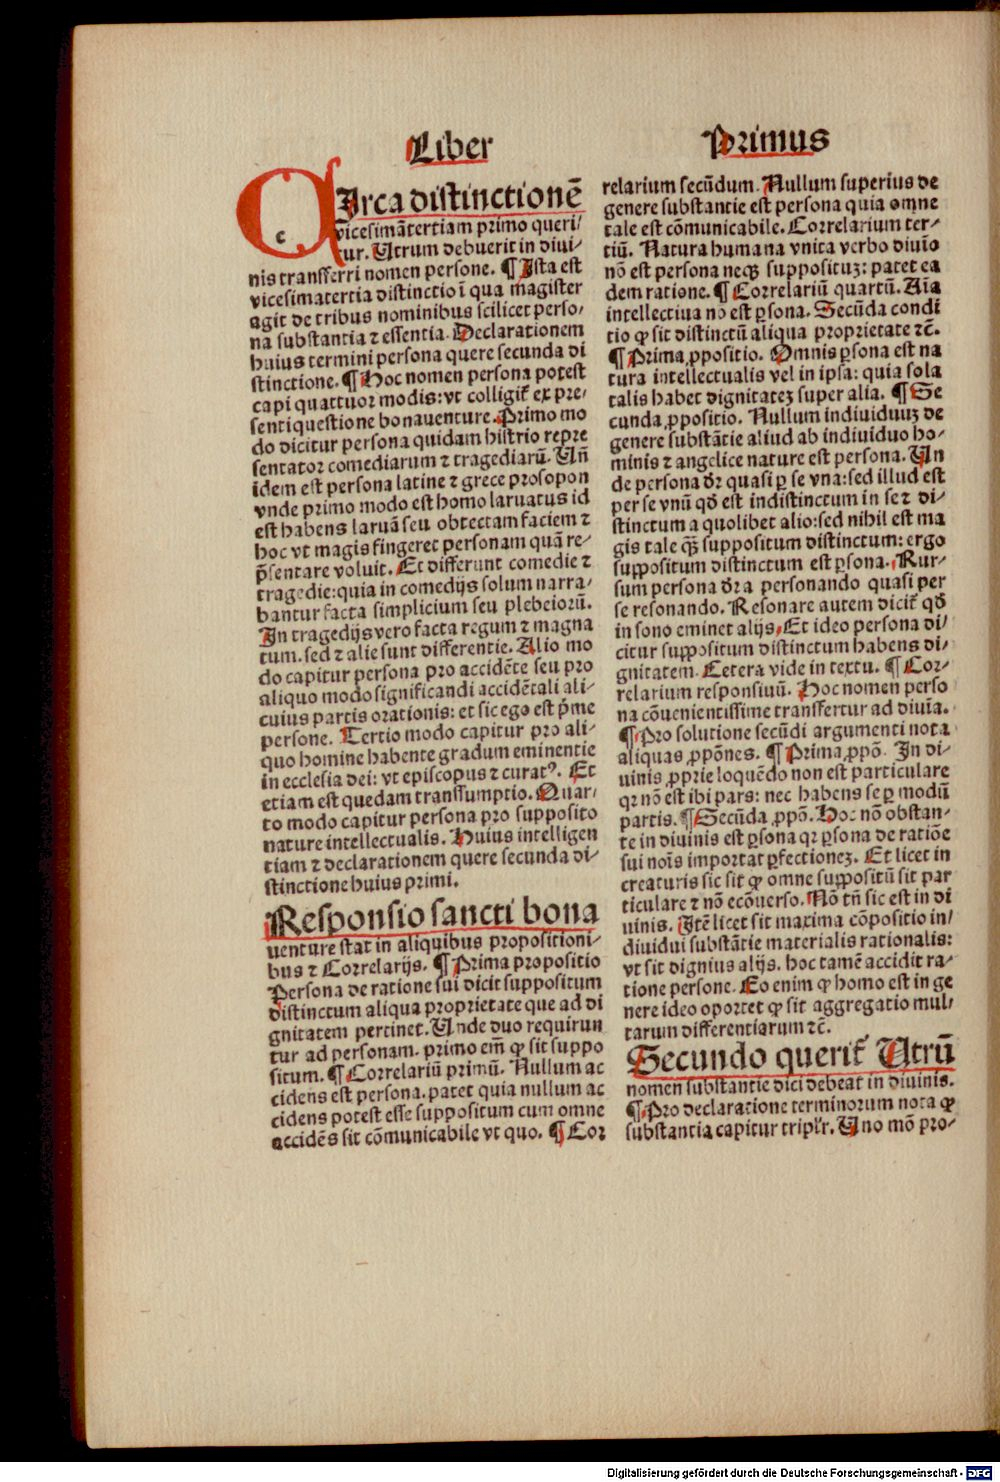 Liber
Primus
CIrca distinctionē
vicesimātertiam primo queri/
tur. Utrum debuerit in diui/
nis transferri nomen persone. ¶ Ista est
vicesimatertia distinctio ī qua magister
agit de tribus nominibus scilicet perso/
na substantia ⁊ essentia. Declarationem
huius termini persona quere secunda di
stinctione. ¶ Hoc nomen persona potest
capi quattuor modis: vt colligit᷑ ex pre/
senti questione bonauenture. Primo mo
do dicitur persona quidam histrio repre
sentator comediarum ⁊ tragediarū. Uñ
idem est persona latine ⁊ grece prosopon
vnde primo modo est homo laruatus id
est habens laruā seu obtectam faciem ⁊
hoc vt magis fingeret personam quā re/
p̄sentare voluit. Et differunt comedie ⁊
tragedie: quia in comedijs solum narra/
bantur facta simplicium seu plebeiorū.
In tragedijs vero facta regum ⁊ magna
tum. sed ⁊ alie sunt differentie. Alio mo
do capitur persona pro accidēte seu pro
aliquo modo significandi accidētali ali/
cuius partis orationis: et sic ego est p̄me
persone. Tertio modo capitur pro ali/
quo homine habente gradum eminentie
in ecclesia dei: vt episcopus ⁊ curatꝰ. Et
etiam est quedam transsumptio. Quar/
to modo capitur persona pro supposito
nature intellectualis. Huius intelligen
tiam ⁊ declarationem quere secunda di/
stinctione huius primi.
Responsio sancti bona
uenture stat in aliquibus propositioni/
bus ⁊ Correlarijs. ¶ Prima propositio
Persona de ratione sui dicit suppositum
distinctum aliqua proprietate que ad di
gnitatem pertinet. Unde duo requirun
tur ad personam. primo em̄ ꝙ sit suppo
situm. ¶ Correlariū primū. Nullum ac
cidens est persona. patet quia nullum ac
cidens potest esse suppositum cum omne
accidēs sit cōmunicabile vt quo. ¶ Cor
relarium secūdum. Nullum superius de
genere substantie est persona quia omne
tale est cōmunicabile. Correlarium ter/
tiū. Natura humana vnita verbo diuīo
nō est persona neqꝫ supposituꝫ: patet ea
dem ratione. ¶ Correlariū quartū. Aīa
intellectiua no est ꝑsona. Secūda condi
tio ꝙ sit distinctū aliqua proprietate ⁊c̄.
¶ Prima ꝓpositio. Omnis ꝑsona est na
tura intellectualis vel in ipsa: quia sola
talis habet dignitateꝫ super alia. ¶ Se
cunda ꝓpositio. Nullum indiuiduuꝫ de
genere substātie aliud ab indiuiduo ho/
minis ⁊ angelice nature est persona. Un
de persona dr̄ quasi ꝑ se vna: sed illud est
per se vnū qd̄ est indistinctum in se ⁊ di/
stinctum a quolibet alio: sed nihil est ma
gis tale qꝫ̄ suppositum distinctum: ergo
suppositum distinctum est ꝑsona. Rur/
sum persona dr̄ a personando quasi per
se resonando. Resonare autem dicit᷑ qd̄
in sono eminet alijs. Et ideo persona di/
citur suppositum distinctum habens di/
gnitatem. Cetera vide in textu. ¶ Cor/
relarium responsiuū. Hoc nomen perso
na cōuenientissime transfertur ad diuīa.
¶ Pro solutione secūdi argumenti nota
aliquas ꝓpōnes. ¶ Prima ꝓpō. In di/
uinis ꝓprie loquēdo non est particulare
qꝛ nō est ibi pars: nec habens se ꝑ modū
partis. ¶ Secūda ꝓpō. Hoc nō obstan/
te in diuinis est ꝑsona qꝛ ꝑsona de ratiōe
sui noīs importat ꝑfectioneꝫ. Et licet in
creaturis sic sit ꝙ omne suppositū sit par
ticulare ⁊ nō ecōuerso. Nō tñ sic est in di
uinis. Itē licet sit maxima cōpositio in/
diuidui substātie materialis rationalis:
vt sit dignius alijs. hoc tamē accidit ra/
tione persone. Eo enim ꝙ homo est in ge
nere ideo oportet ꝙ sit aggregatio mul/
tarum differentiarum ⁊c̄.
Secundo querit᷑ Utrū
nomen substantie dici debeat in diuinis.
¶ Pro declaratione terminorum nota ꝙ
substantia capitur tripłr. Uno mō pro/
Digitalisierung gefördert durch die Deutsche Forschungsgemeinschaft - DFG